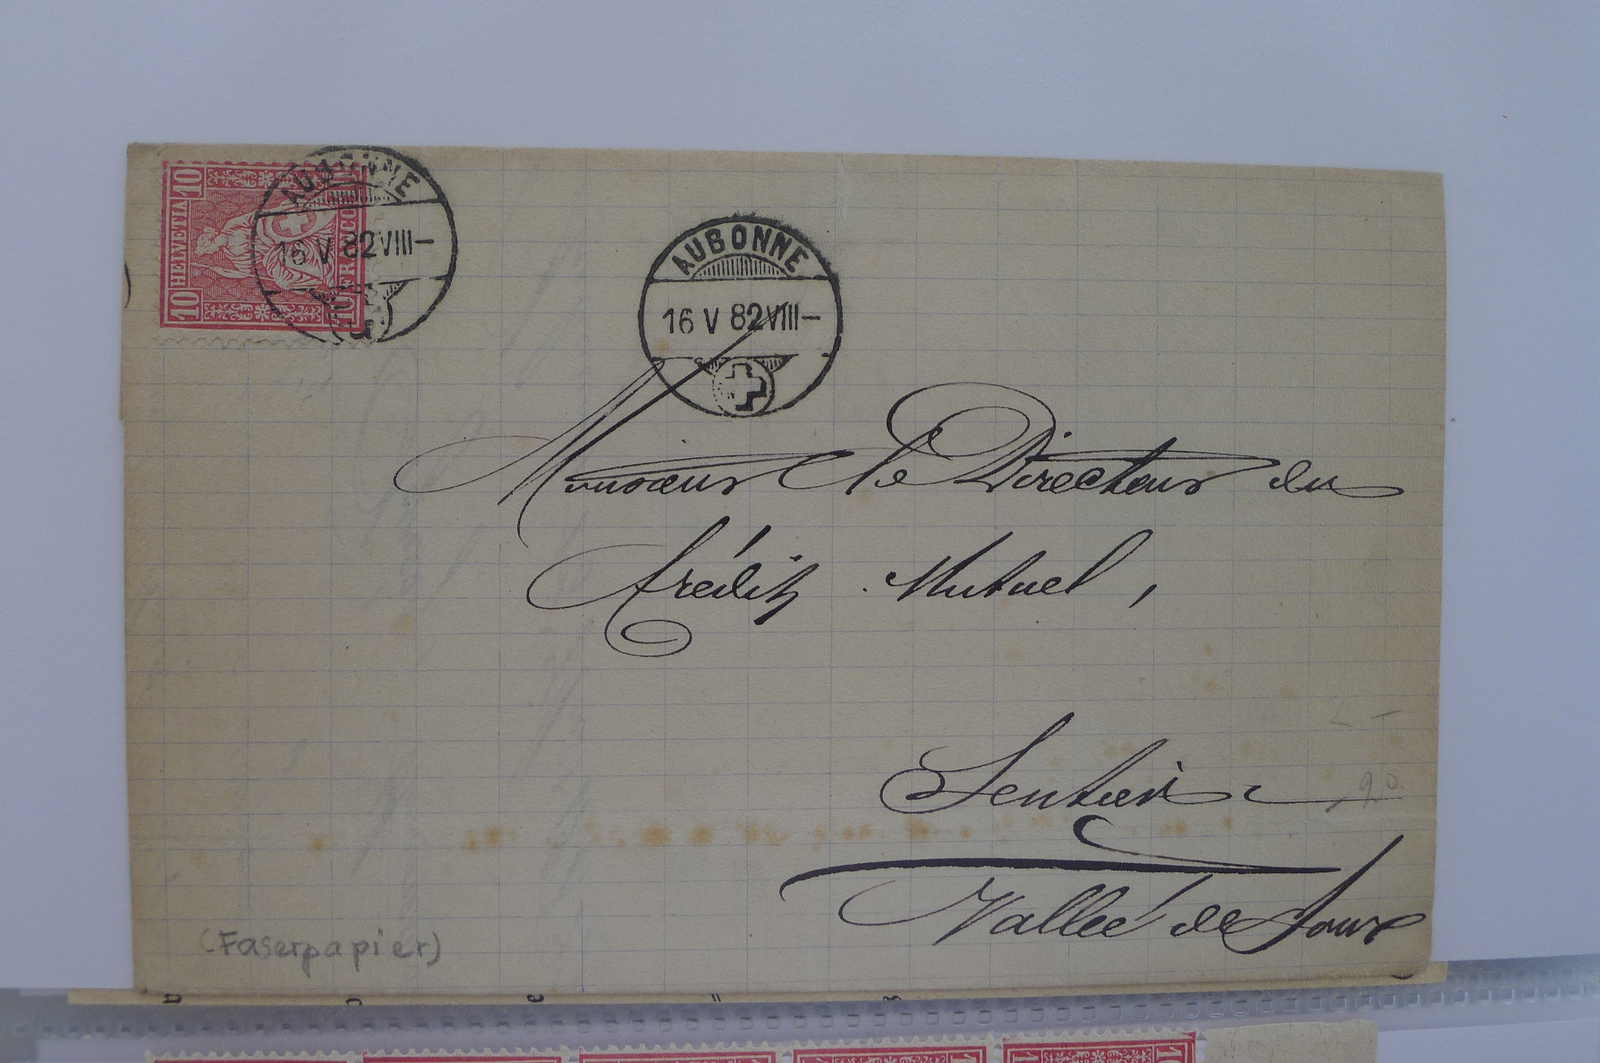 10 HELVETIA 10
10 FRANCO
AUBONNE
16 V 82 VIII–
AUBONNE
16 V 82 VIII–
Monsieur le Directeur du
Crédit Mutuel,
Sentier
Vallée de Joux
(Faserpapier)